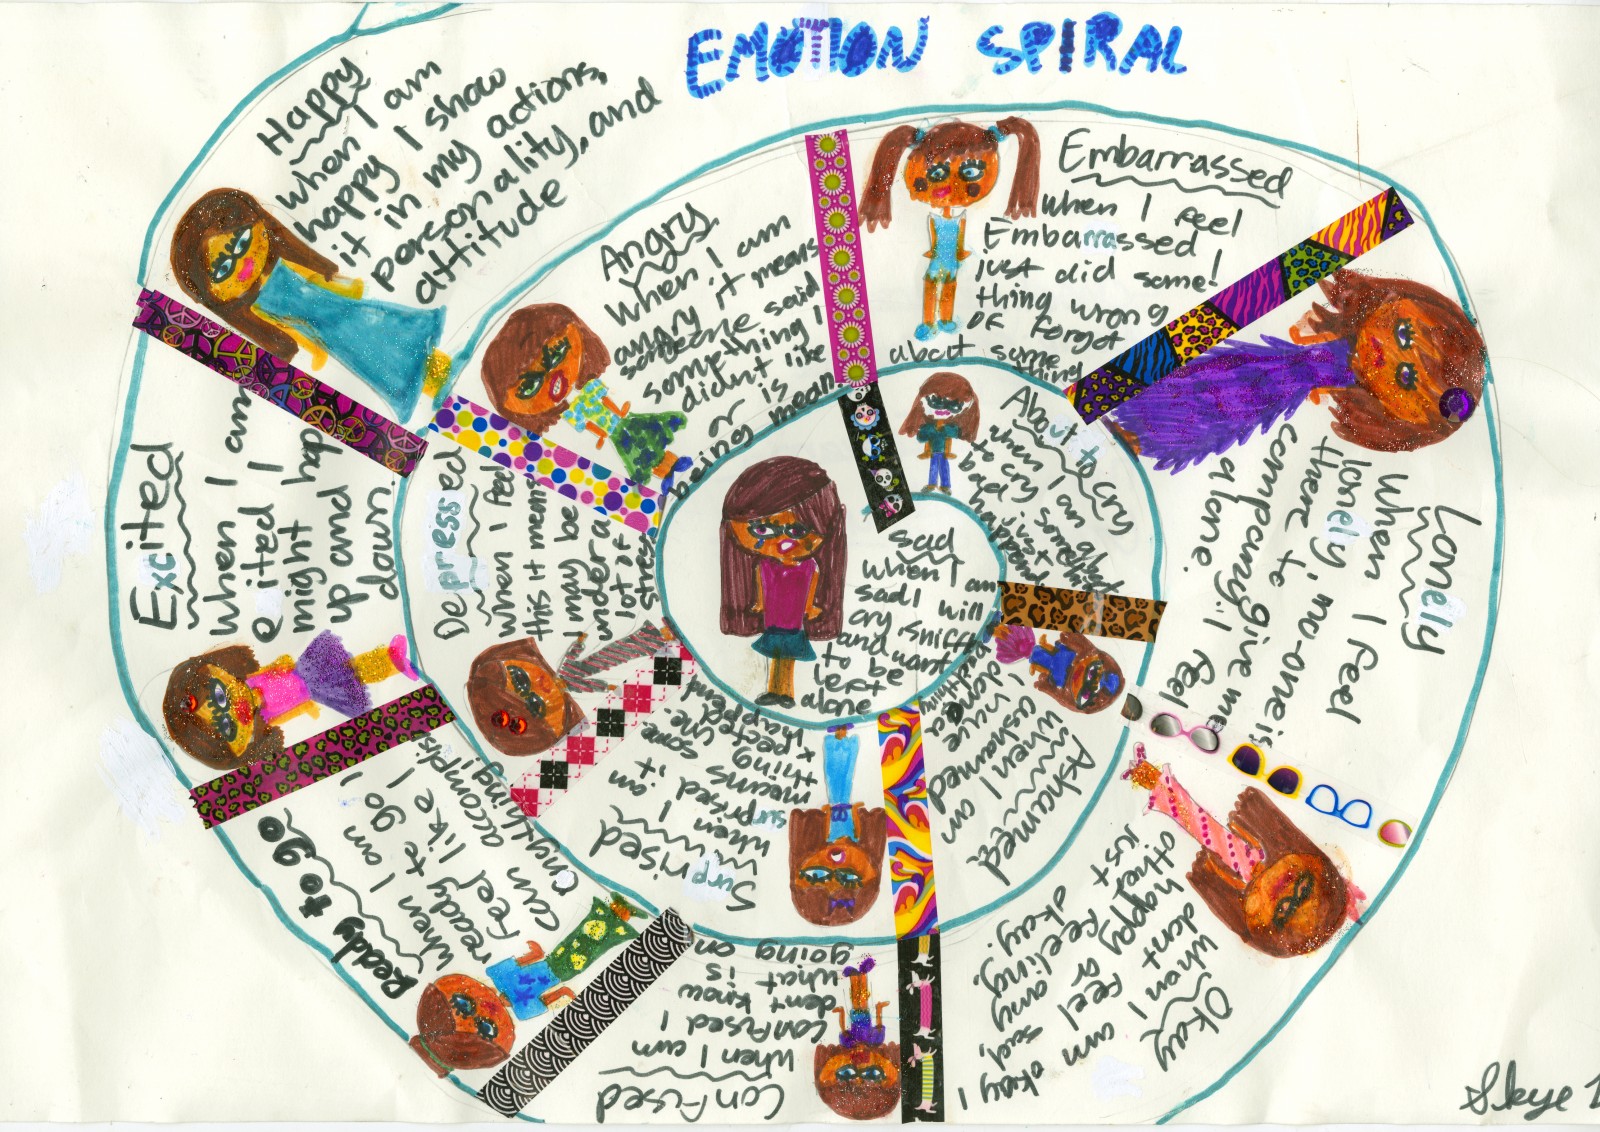 EMOTION SPIRAL
Happy
when I am
happy I show
it in my actions,
personality, and
attitude
Excited
When I am
excited I
might hop
up and
down.
Ready to go
When I am
ready to go I
feel like I
can accomplis
anything.
Confused
When I am
confused I
don't know
what is
going on
Okay
When I am okay I
don't feel sad,
happy or any
other feeling.
just okay.
Lonely
When I feel
lonely, no-one is
there to give me
company. I feel
alone.
Embarrassed
when I feel
Embarrassed I
just did some!
thing wrong
or forgot
about some
thing
Angry
When I am
angry it means
someone said
something I
didnt like
or is
being mean.
Depressed
When I feel
this it means
I may be
under a
lot of
stress
Surprised
When I am
surprised it
means some
thing une
xpected
happend
Ashamed
When I am
ashamed
I have
done a
bad thing
About to cry
when I am about
to cry something
bad just
happend
Sad
When I am
sad I will
cry, sniffle
and want
to be
left
alone
Skye